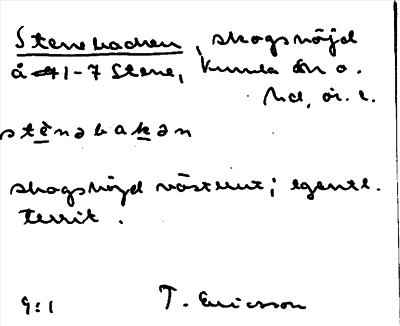 Stenebacken, skogshöjd
å 1-7 Stene, Kumla sn o.
hd, ör. l.
stènabakan
skogshöjd västerut; egentl.
territ.
9:1 T. Ericsson